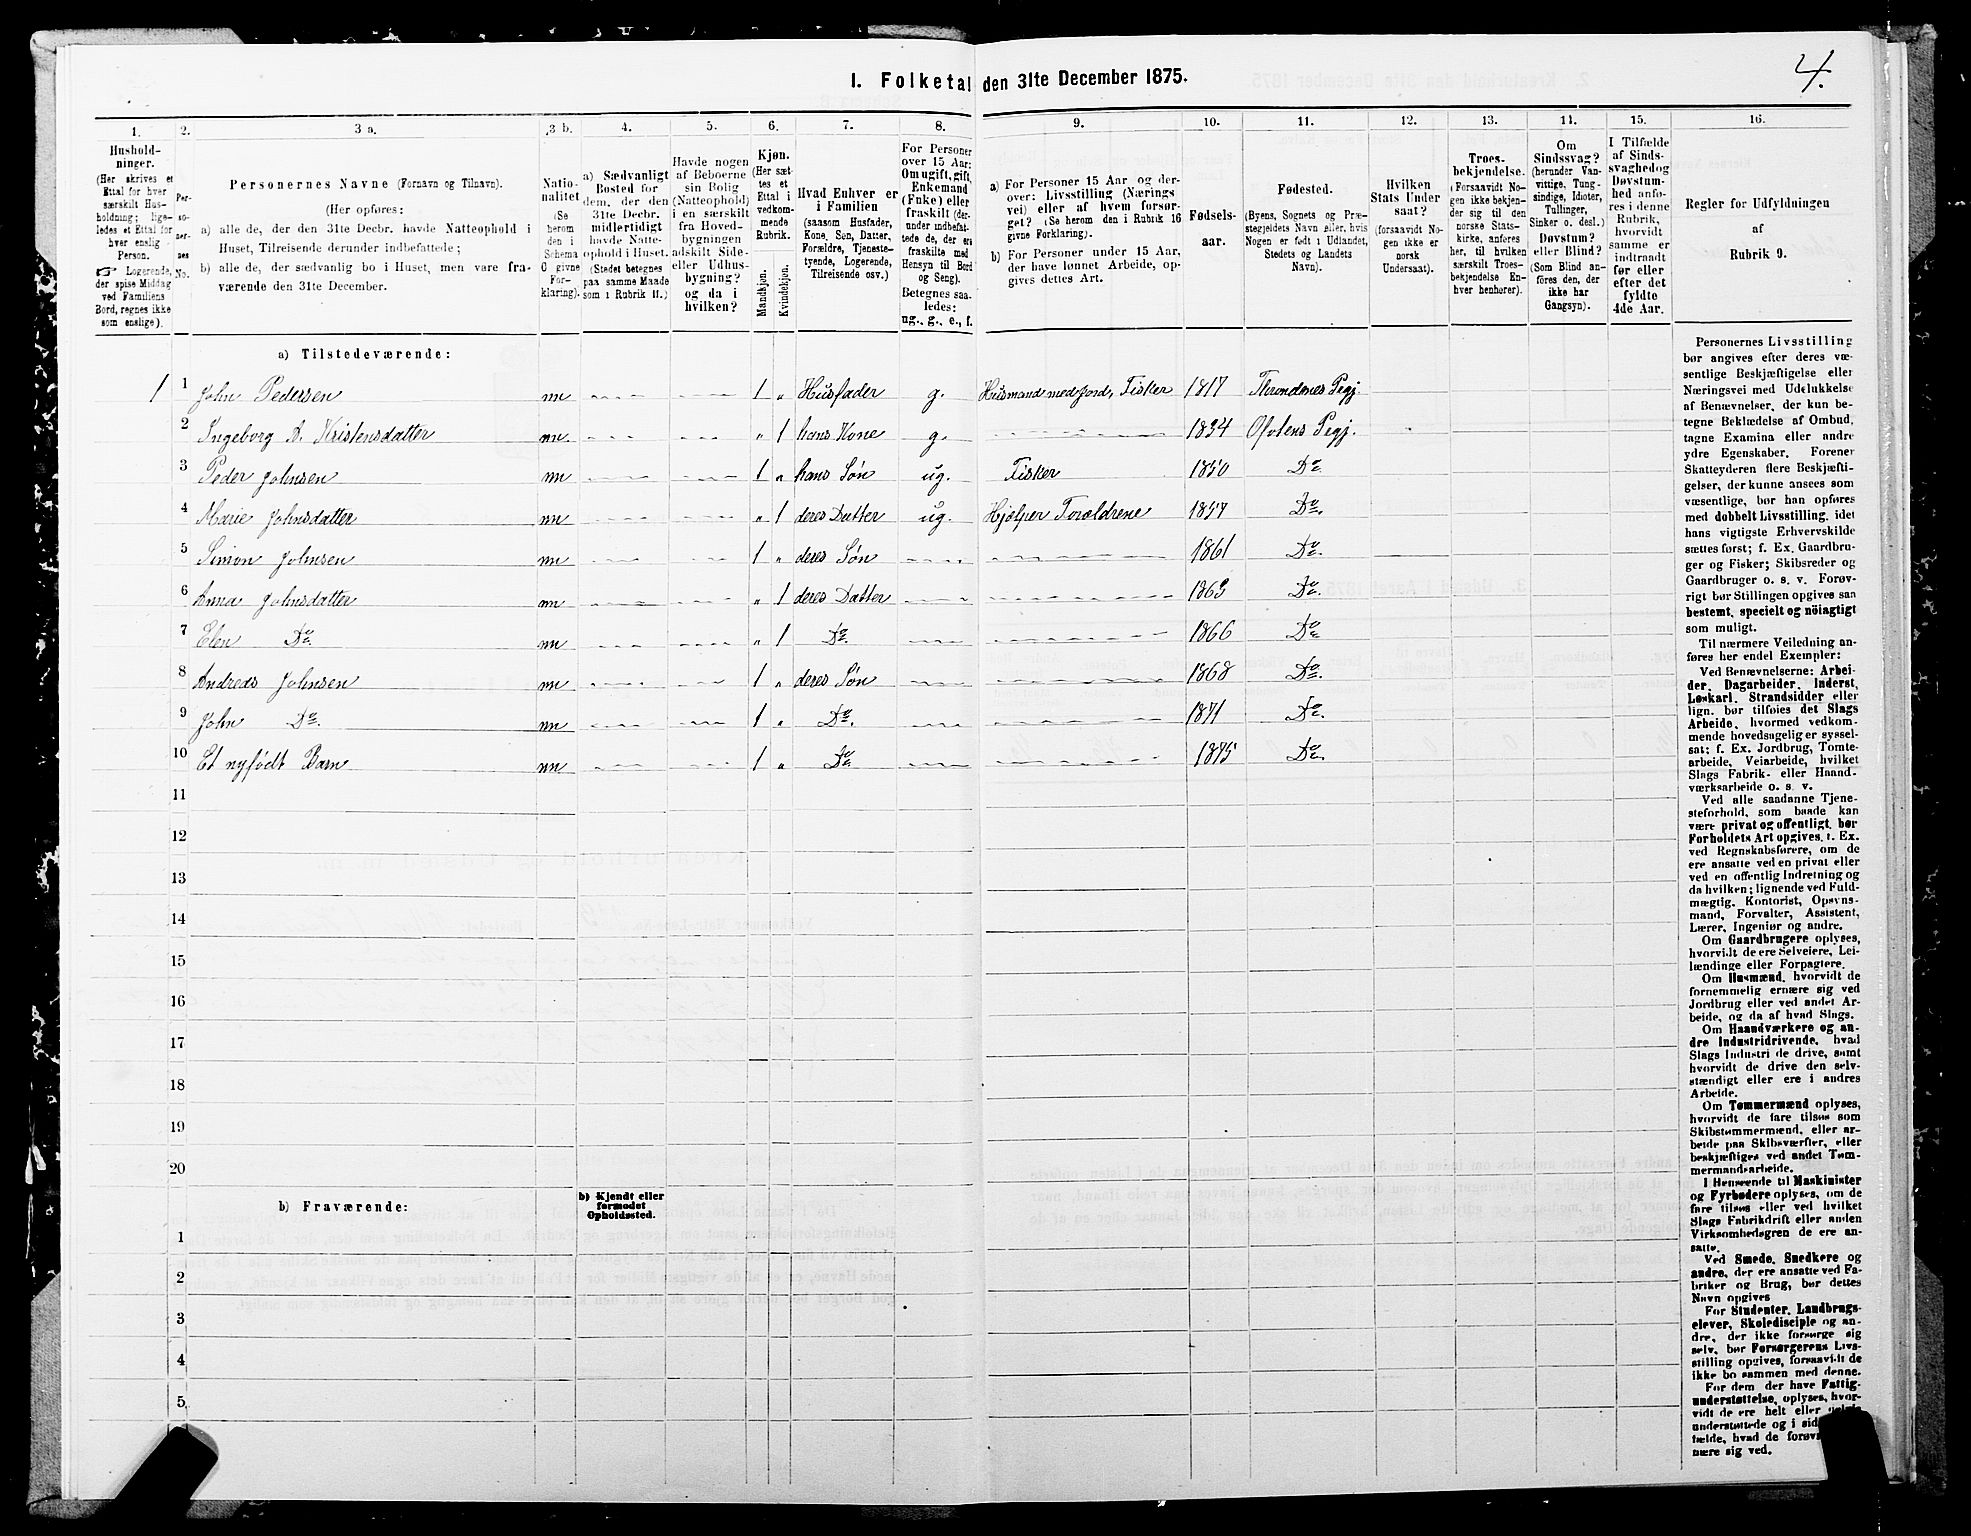 4.
I. Folketal den 31te December 1875.
1. 2. 3 a. 3 b. 4. 5. 6. 7. 8. 9. 10. 11. 12. 13. 14. 15. 16.
Husholdninger. (Her skrives et Ettal for hver særskilt Husholdning; ligeledes et Ettal for hver enslig Person. ☞ Logerende, der spise Middag ved Familiens Bord, regnes ikke som enslige).
Personernes No.
Personernes Navne (Fornavn og Tilnavn).
(Her opføres:
a) alle de, der den 31te Decbr. havde Natteophold i Huset, Tilreisende derunder indbefattede;
b) alle de, der sædvanlig bo i Huset, men vare fraværende den 31te December.
Nationalitet (Se herom den i Schema C givne Forklaring).
a) Sædvanligt Bosted for dem, der den 31te Decbr. midlertidigt havde Natteophold i Huset. (Stedet betegnes paa samme Maade som i Rubrik 11.)
Havde nogen af Beboerne sin Bolig (Natteophold) i en særskilt fra Hovedbygningen adskilt Side- eller Udhusbygning? og da i hvilken?
Kjøn. (Her sættes et Ettal i vedkommende Rubrik.
Mandkjøn. Kvindekjøn.
Hvad Enhver er i Familien (saasom Husfader, Kone, Søn, Datter, Forældre, Tjenestetyende, Logerende, Tilreisende osv.)
For Personer over 15 Aar: Om ugift, gift, Enkemand (Enke) eller fraskilt (derunder indbefattede de, der ere fraskilte med Hensyn til Bord og Seng). Betegnes saaledes: ug., g., e., f.
a) For Personer 15 Aar og derover: Livsstilling (Næringsvei) eller af hvem forsørget? (Se herom den i Rubrik 16 givne Forklaring).
b) For Personer under 15 Aar, der have lønnet Arbeide, opgives dettes Art.
Fødselsaar.
Fødested. (Byens, Sognets og Præstegjeldets Navn eller, hvis Nogen er født i Udlandet, Stedets og Landets Navn).
Hvilken Stats Undersaat? (forsaavidt Nogen ikke er norsk Undersaat).
Troesbekjendelse. (Forsaavidt Nogen ikke bekjender sig til den norske Statskirke, anføres her, til hvilken særskilt Troesbekjendelse Enhver henhører).
Om Sindssvag? (herunder Vanvittige, Tungsindige, Idioter, Tullinger, Sinker o. desl.) Døvstum? eller Blind? (Som Blind anføres den, der ikke har Gangsyn).
I Tilfælde af Sindssvaghed og Døvstumhed anføres i denne Rubrik, hvorvidt samme er indtraadt før eller efter det fyldte 4de Aar.
Regler for Udfyldningen af Rubrik 9.
a) Tilstedeværende:
1 1 John Pedersen nn 1 „ Husfader g. Husmand med Jord, Fisker 1817 Throndenes Pgj.
2 Ingeborg A. Kristensdatter nn. „ 1 hans Kone g. 1834 Ofotens Pgj.
3 Peder Johnsen nn 1 „ hans Søn ug. Fisker 1850 Do.
4 Marie Johnsdatter nn „ 1 deres Datter ug. Hjælper Forældrene 1857 Do.
5 Simon Johnsen nn 1 „ deres Søn 1861 Do.
6 Anna Johnsdatter nn „ 1 deres Datter 1863 Do.
7 Elen Do. nn „ 1 Do. 1866 Do.
8 Andreas Johnsen nn 1 „ deres Søn 1868 Do.
9 John Do. nn 1 „ Do. 1871 Do.
10 Et nyfödt Barn nn 1 „ Do. 1875 Do.
11
12
13
14
15
16
17
18
19
20
b) Fraværende: b) Kjendt eller formodet Opholdssted.
1
2
3
4
5
Personernes Livsstilling
bør angives efter deres væ-
sentlige Beskjæftigelse eller
Næringsvei med Udelukkelse
af Benævnelser, der kun be-
tegne Beklædelse af Ombud,
tagne Examina eller andre
ydre Egenskaber. Forener
Skatteyderen flere Beskjæfti-
gelser, der kunne ansees som
væsentlige, bør han opføres
med dobbelt Livsstilling, idet
hans vigtigste Erhvervskilde
sættes først; f. Ex. Gaardbru-
ger og Fisker; Skibsreder og
Gaardbruger o. s. v. Forøv-
rigt bør Stillingen opgives saa
bestemt, specielt og nöiagtigt
som muligt.
Til nærmere Veiledning an-
føres her endel Exempler:
Ved Benævnelserne: Arbei-
der, Dagarbeider, Inderst,
Løskarl, Strandsidder eller
lign. bør tilføies det Slags
Arbeide, hvormed vedkom-
mende hovedsagelig er syssel-
sat; f. Ex. Jordbrug, Tomte-
arbeide, Veiarbeide, hvilket
Slags Fabrik- eller Haand-
værksarbeide o. s. v.
Ved alle saadanne Tjene-
steforhold, som baade kan
være privat og offentligt, bør
Forholdets Art opgives, f. Ex.
ved Regnskabsførere, om de
ere ansatte ved en privat eller
ved en offentlig Indretning og
da hvilken; lignende ved Fuld-
mægtig, Kontorist, Opsyns-
mand, Forvalter, Assistent,
Lærer, Ingeniør og andre.
Om Gaardbrugere oplyses,
hvorvidt de ere Selveiere, Lei-
lændinge eller Forpagtere.
Om Husmænd, hvorvidt de
fornemmelig ernære sig ved
Jordbrug eller ved andet Ar-
beide, og da af hvad Slags.
Om Haandværkere og an-
dre Industridrivende, hvad
Slags Industri de drive, samt
hvorvidt de drive den selv-
stændigt eller ere i andres
Arbeide.
Om Tømmermænd oplyses,
hvorvidt de fare tilsøs som
Skibstømmermænd, eller ar-
beide paa Skibsværfter, eller
beskjæftiges ved andet Tøm-
mermandsarbeide.
I Henseende til Maskinister
og Fyrbødere oplyses, om de
fare tilsøs eller ved hvilket
Slags Fabrikdrift eller anden
Virksomhedsgren de ere an-
satte.
Ved Smede, Snedkere og
andre, der ere ansatte ved Fa-
briker og Brug, bør dettes
Navn opgives
For Studenter, Landbrugs-
elever, Skoledisciple og an-
dre, der ikke forsørge sig
selv, bør Forsørgerens Livs-
stilling opgives, forsaavidt de
ikke bo sammen med denne.
For dem der have Fattig-
understøttelse, oplyses, hvor-
vidt de ere helt eller
understøttede og i
hvad de
nære sig ved.